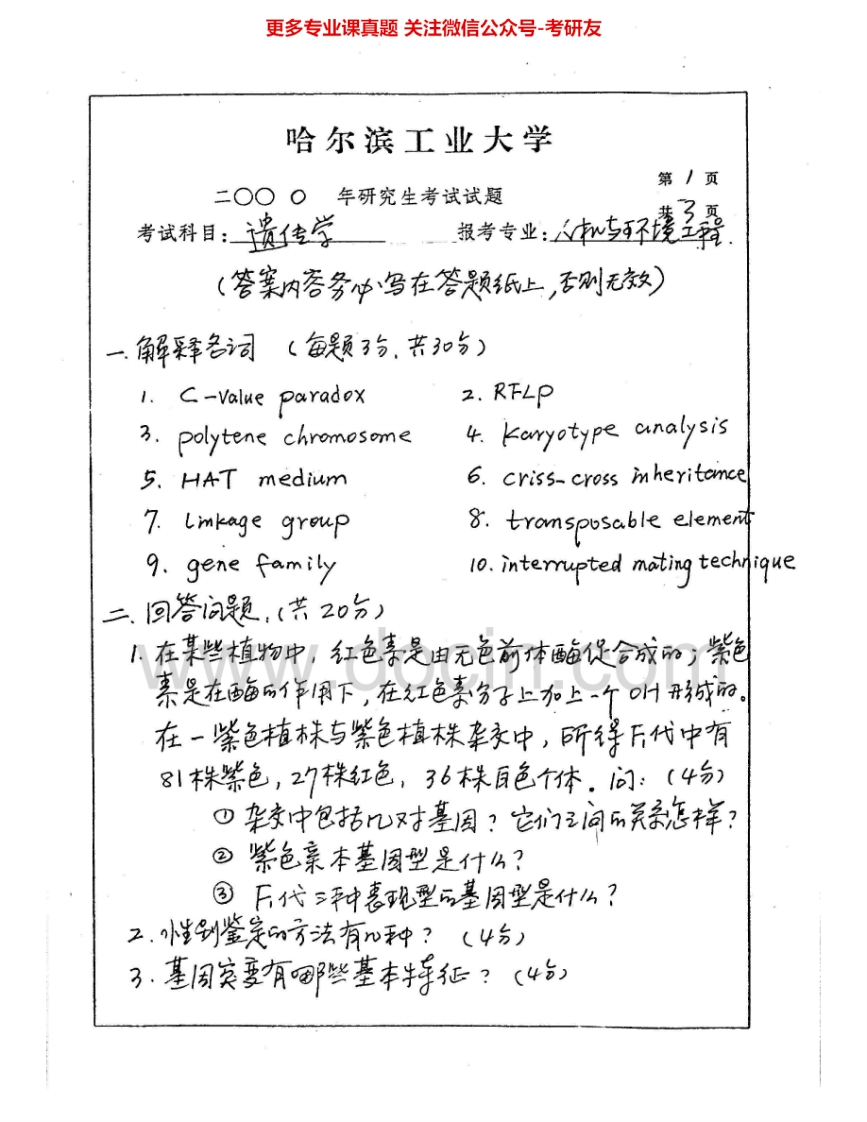 更多专业课真题 关注微信公众号-考研友
哈尔滨工业大学
第 1 页
二〇〇〇 年研究生考试试题
共 3 页
考试科目：遗传学 报考专业：人机与环境工程.
（答案内容务必写在答题纸上，否则无效）
一.解释名词 （每题3分.共30分）
1. C-value paradox 2. RFLP
3. polytene chromosome 4. Karyotype analysis
5. HAT medium 6. criss-cross inheritance
7. Linkage group 8. transposable element
9. gene family 10. interrupted mating technique
二.回答问题.（共20分）
www.docin.com
1. 在某些植物中，红色素是由无色前体酶促合成的；紫色
素是在酶的作用下，在红色素分子上加上一个OH形成的。
在一紫色植株与紫色植株杂交中，所得F1代中有
81株紫色，27株红色，36株白色个体。问：（4分）
① 杂交中包括几对基因？它们之间的关系怎样？
② 紫色亲本基因型是什么？
③ F1代三种表现型的基因型是什么？
2. 性别鉴定的方法有几种？（4分）
3. 基因突变有哪些基本特征？（4分）